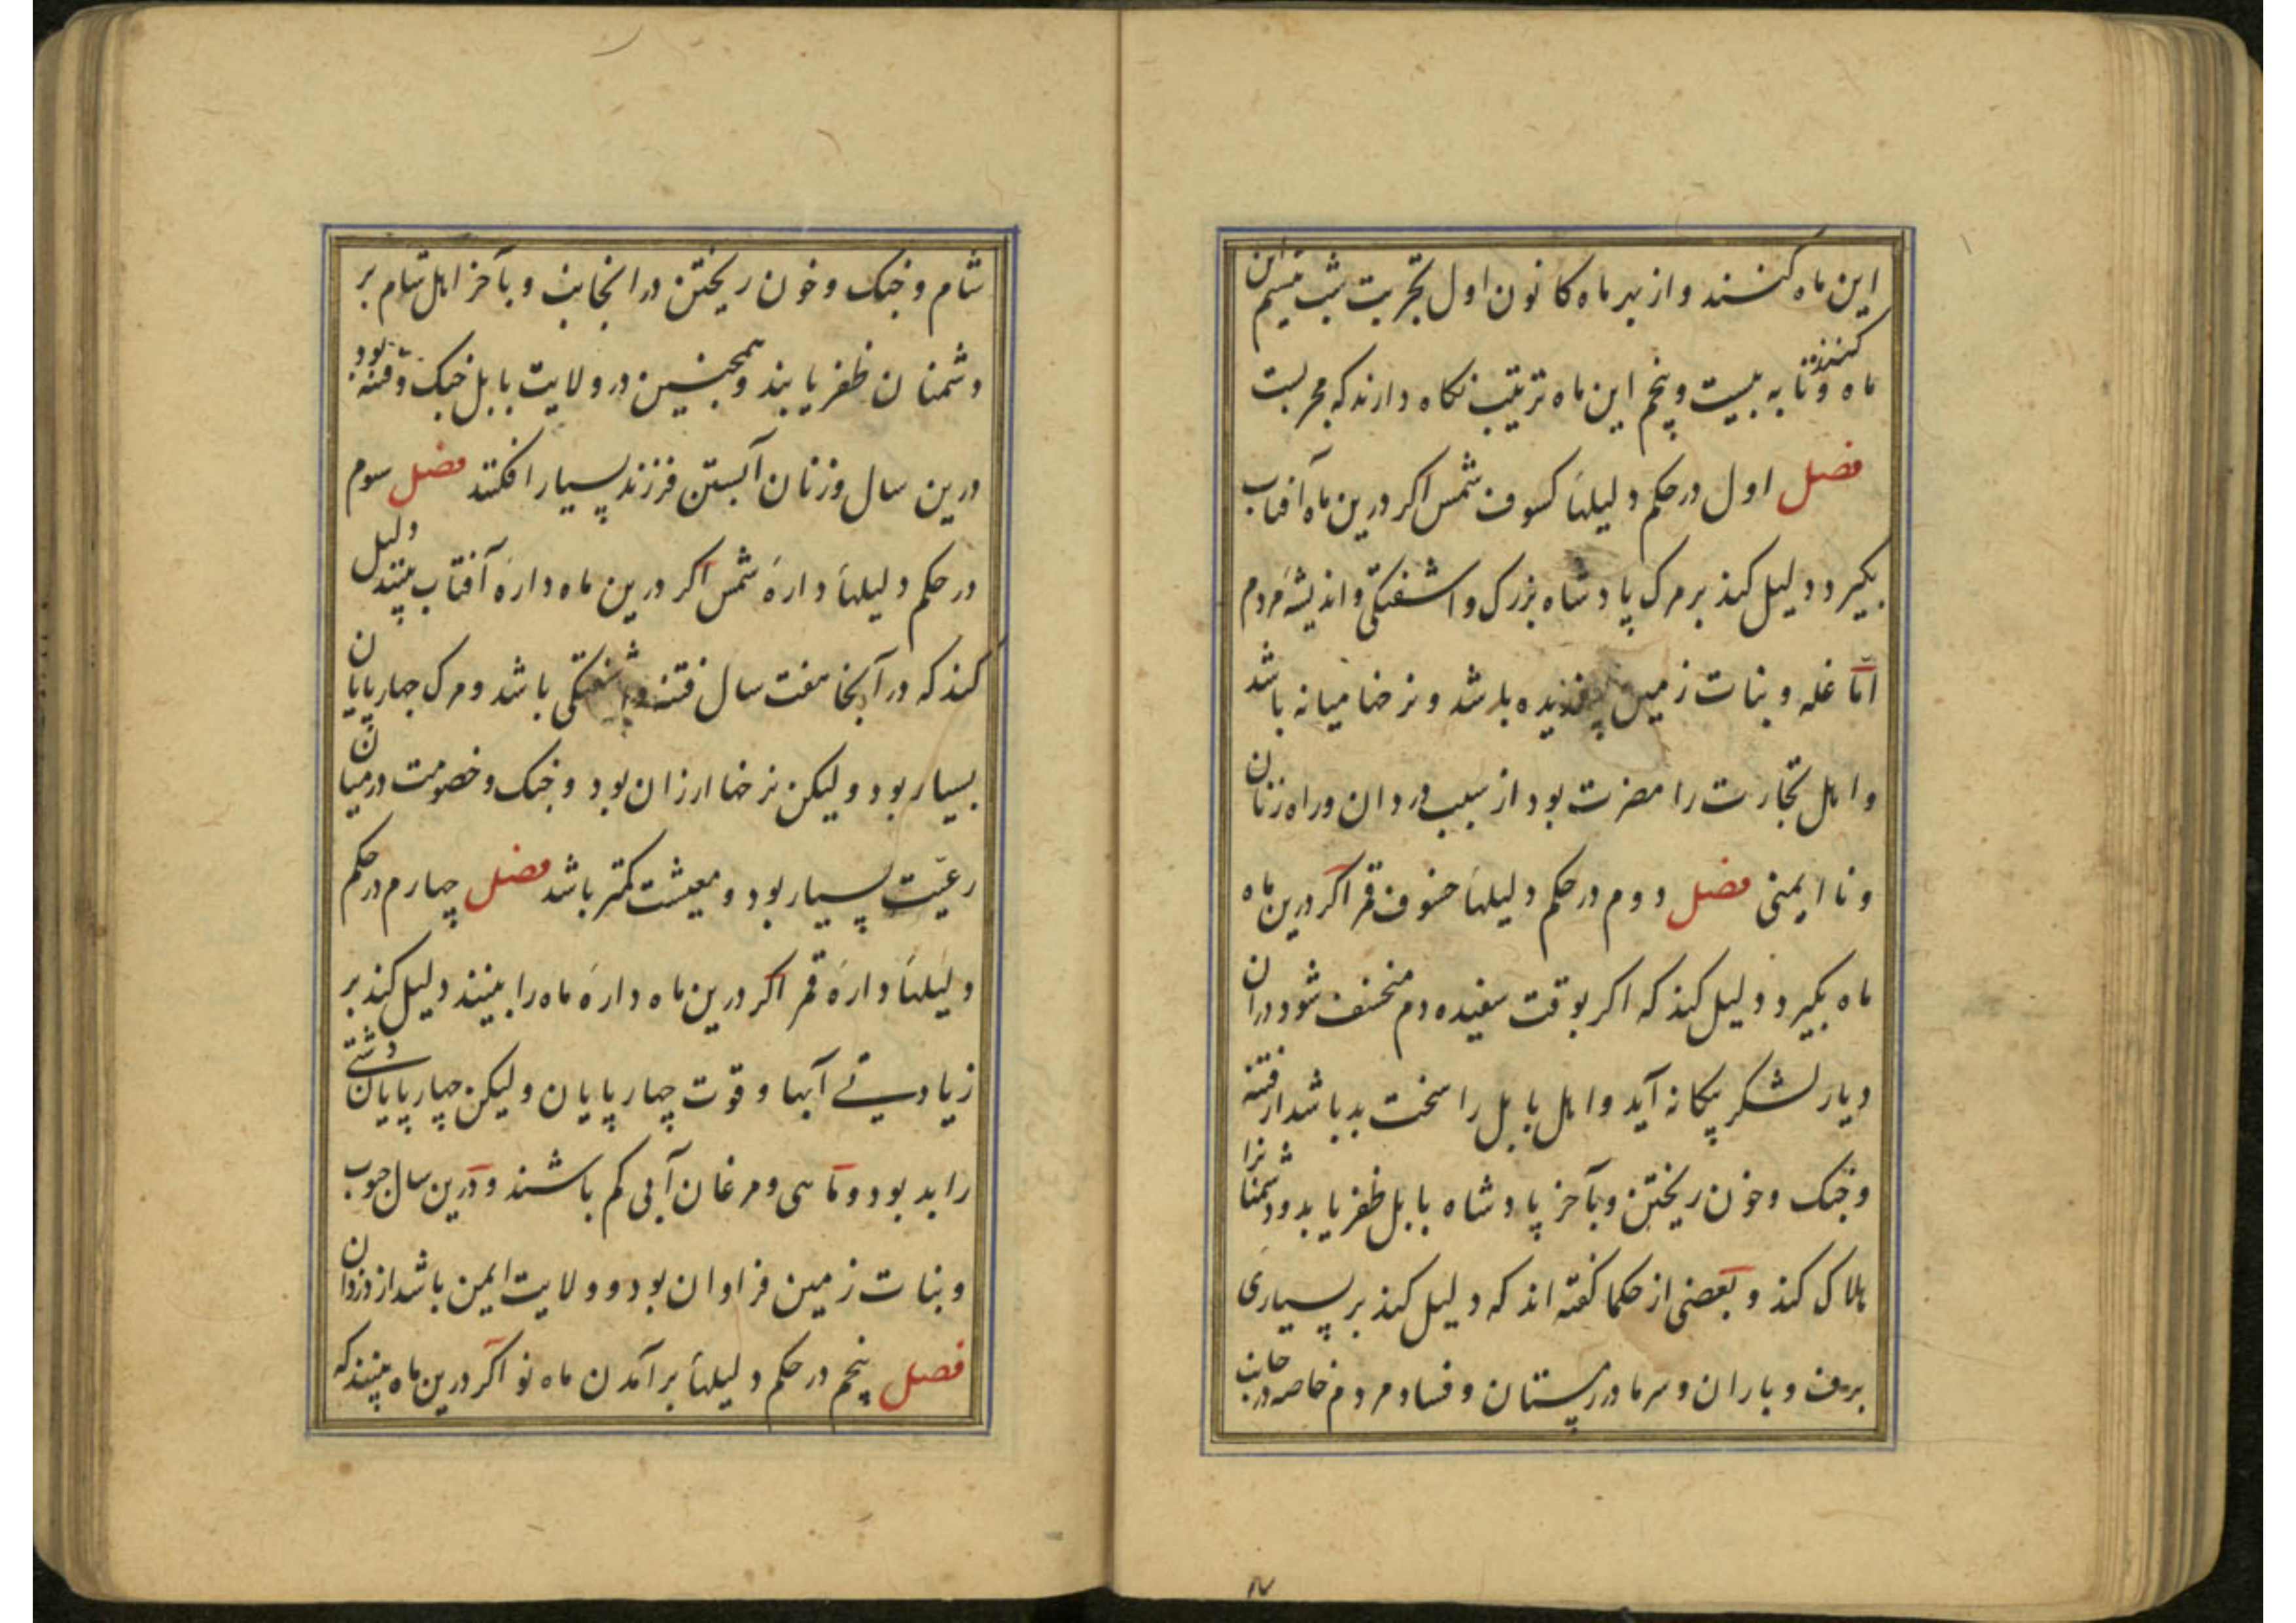 این ماه کنند و از بهر ماه کانون اول تجربت شب بیستم این
ماه کنند و تا به بیست و پنجم این ماه ترتیب نکاه دارند که مجربست
فصل اول در حکم دلیلهاء کسوف شمس اکر درین ماه آفتاب
بکیرد دلیل کند بر مرک پادشاه بزرک و اشفتکی و اندیشه مردم
اما غله و نبات زمین باشد و نرخها میانه باشد
و اهل تجارت را مضرت بود از سبب دزدان و راه زنان
و نا ایمنی فصل دوم در حکم دلیلهاء خسوف قمر اکر درین ماه
ماه بکیرد دلیل کند که اکر بوقت سفیده دم منخسف شود در ان
دیار لشکر بیکانه آید و اهل بابل را سخت بد باشد از فتنه
و جنک و خون ریختن و بآخر پادشاه بابل ظفر یابد و دشمنانرا
هلاک کند و بعضی از حکما کفته اند که دلیل کند بر بسیاری
برف و باران و سرما در زمستان و فساد مردم خاصه در جانب
شام و جنک و خون ریختن در انجانب و بآخر اهل شام بر
دشمنان ظفر یابند و همچنین در ولایت بابل جنک و فتنه بود
درین سال و زنان آبستن فرزند بسیار افکنند فصل سوم
در حکم دلیلهاء دارهٔ شمس اکر درین ماه دارهٔ آفتاب بینند دلیل
کند که در آنجا هفت سال فتنه و اشفتکی باشد و مرک چهارپایان
بسیار بود و لیکن نرخها ارزان بود و جنک و خصومت در میان
رعیّت بسیار بود و معیشت کمتر باشد فصل چهارم در حکم
دلیلهاء دارهٔ قمر اکر درین ماه دارهٔ ماه را بینند دلیل کند بر
زیادتی آبها و قوّت چهارپایان و لیکن چهارپایان دشتی
را بد بود و ماهی و مرغان آبی کم باشند و درین سال حبوب
و نبات زمین فراوان بود و ولایت ایمن باشد از دزدان
فصل پنجم در حکم دلیلهاء برآمدن ماه نو اکر درین ماه بینند که